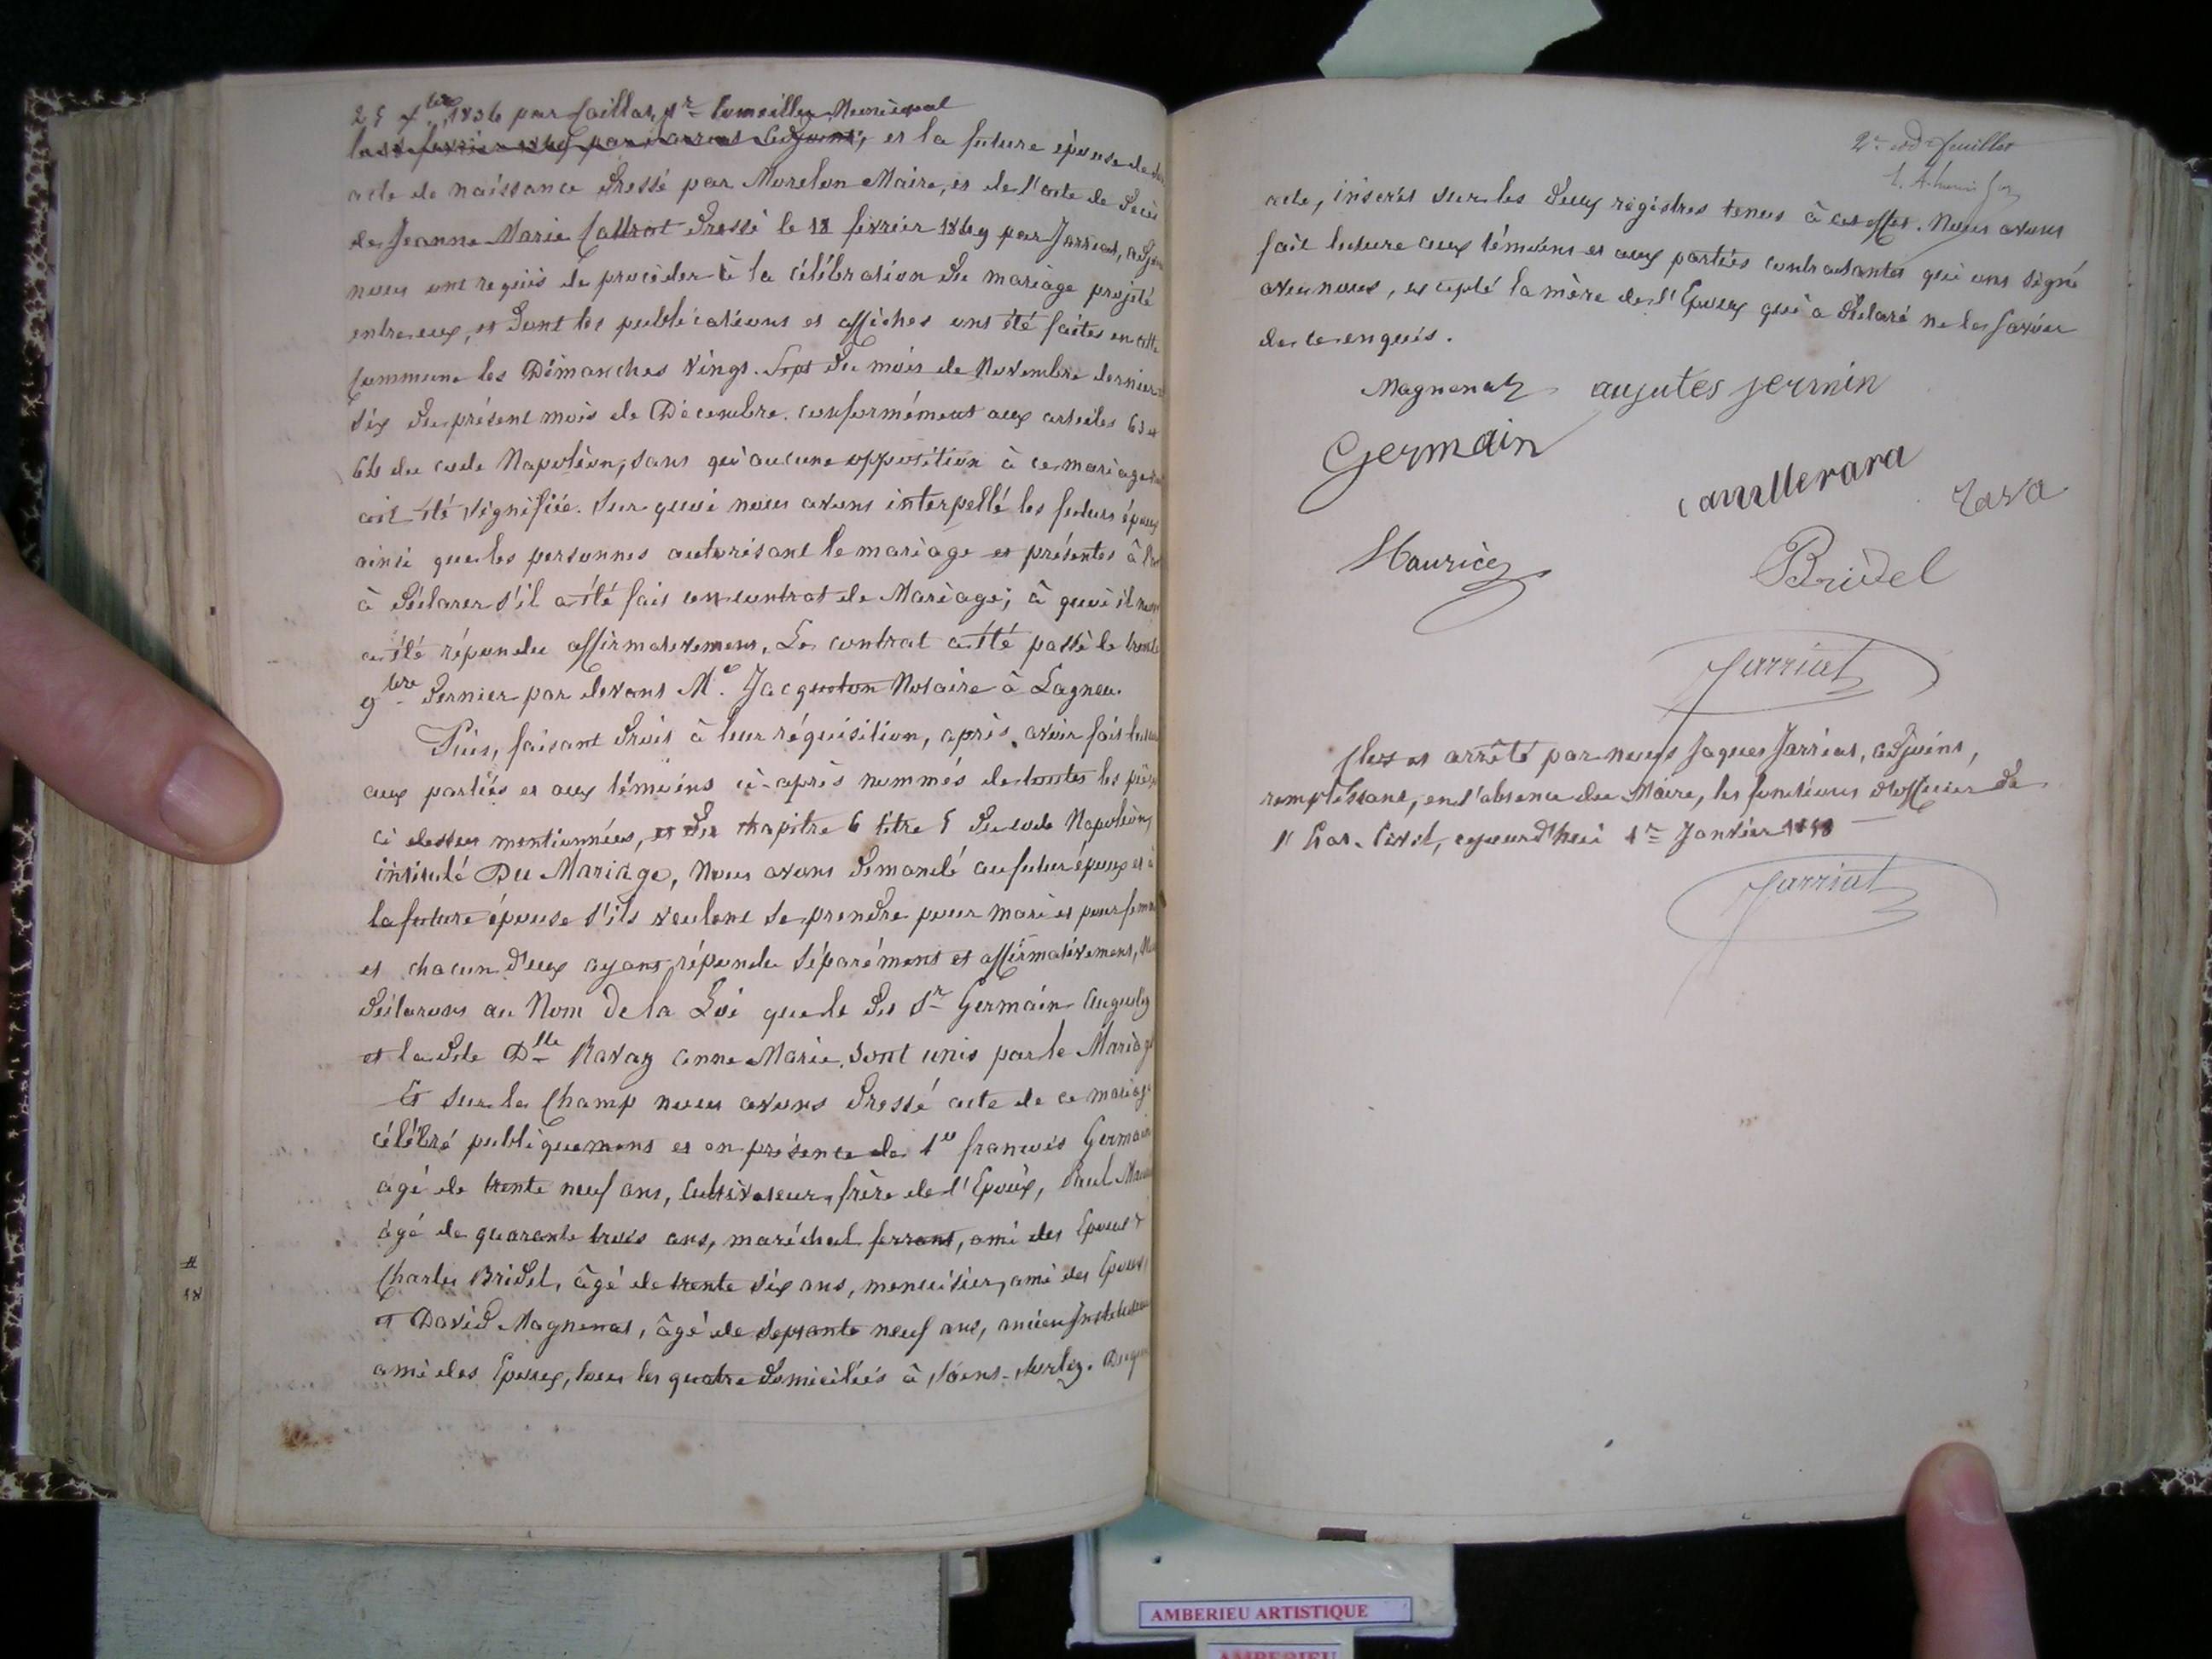 25 7bre 1836 par Caillat, pr Conseiller Municipal
et la future épouse de son
acte de naissance dressé par Morelon Maire, et de l'acte de décès
de Jeanne Marie dressé le 18 février 1849 par Jarriat, adjoint
nous ont requis de procéder à la célébration du mariage projeté
entre eux, et dont les publications et affiches ont été faites en cette
Commune les Dimanches vingt-Sept du mois de Novembre dernier et
Six du présent mois de Décembre. conformément aux articles 63 et
64 du code Napoléon, sans qu'aucune opposition à ce mariage
ait été signifiée. Sur quoi nous avons interpellé les futurs époux
ainsi que les personnes autorisant le mariage et présentes à l'acte
à déclarer s'il a été fait un contrat de Mariage; à quoi il nous
a été répondu affirmativement. Le contrat a été passé le trente
9bre dernier par devant Me. Jacqueton Notaire à Lagneu.
Puis, faisant droit à leur réquisition, après avoir fait lecture
aux parties et aux témoins ci-après nommés de toutes les pièces
ci dessus mentionnées, et du chapitre 6 titre 5 du code Napoléon,
intitulé Du Mariage, Nous avons demandé au futur époux et à
la future épouse s'ils veulent se prendre pour mari et pour femme
et chacun d'eux ayant répondu séparément et affirmativement, Nous
déclarons au Nom de la Loi que le dit Sr Germain
et la dite Dlle Ravaz anne Marie, sont unis par le Mariage
Et sur le Champ nous avons dressé acte de ce mariage
célébré publiquement et en présence de 1er françois Germain
agé de trente neuf ans, Cultivateur, frère de l'Epoux, Paul
âgé de quarante trois ans, maréchal ferrant, ami des Epoux
#
Charles Bridel, âgé de trente six ans, menuisier, ami des Epoux
18
et David Magnenat, âgé de septante neuf ans, ancien Instituteur
ami des Epoux, tous les quatre domiciliés à Saint-Sorlin.
2e et dr feuillet
acte, inscrit sur les deux régistres tenus à cet effet. Nous avons
fait lecture aux témoins et aux parties contractantes qui ont signé
avec nous, excepté la mère de l'Epoux qui a déclaré ne le savoir
de ce enquis.
Magnenat aujutes jermin
Germain
Rava
Maurice
Bridel
Jarriat
Clos et arrêté par nous Jaques Jarriat, adjoint,
remplissant, en l'absence du Maire, les fonctions d'officier de
l'Etat-Civil, aujourd'hui 1er Janvier
Jarriat
AMBERIEU ARTISTIQUE
AMBERIEU